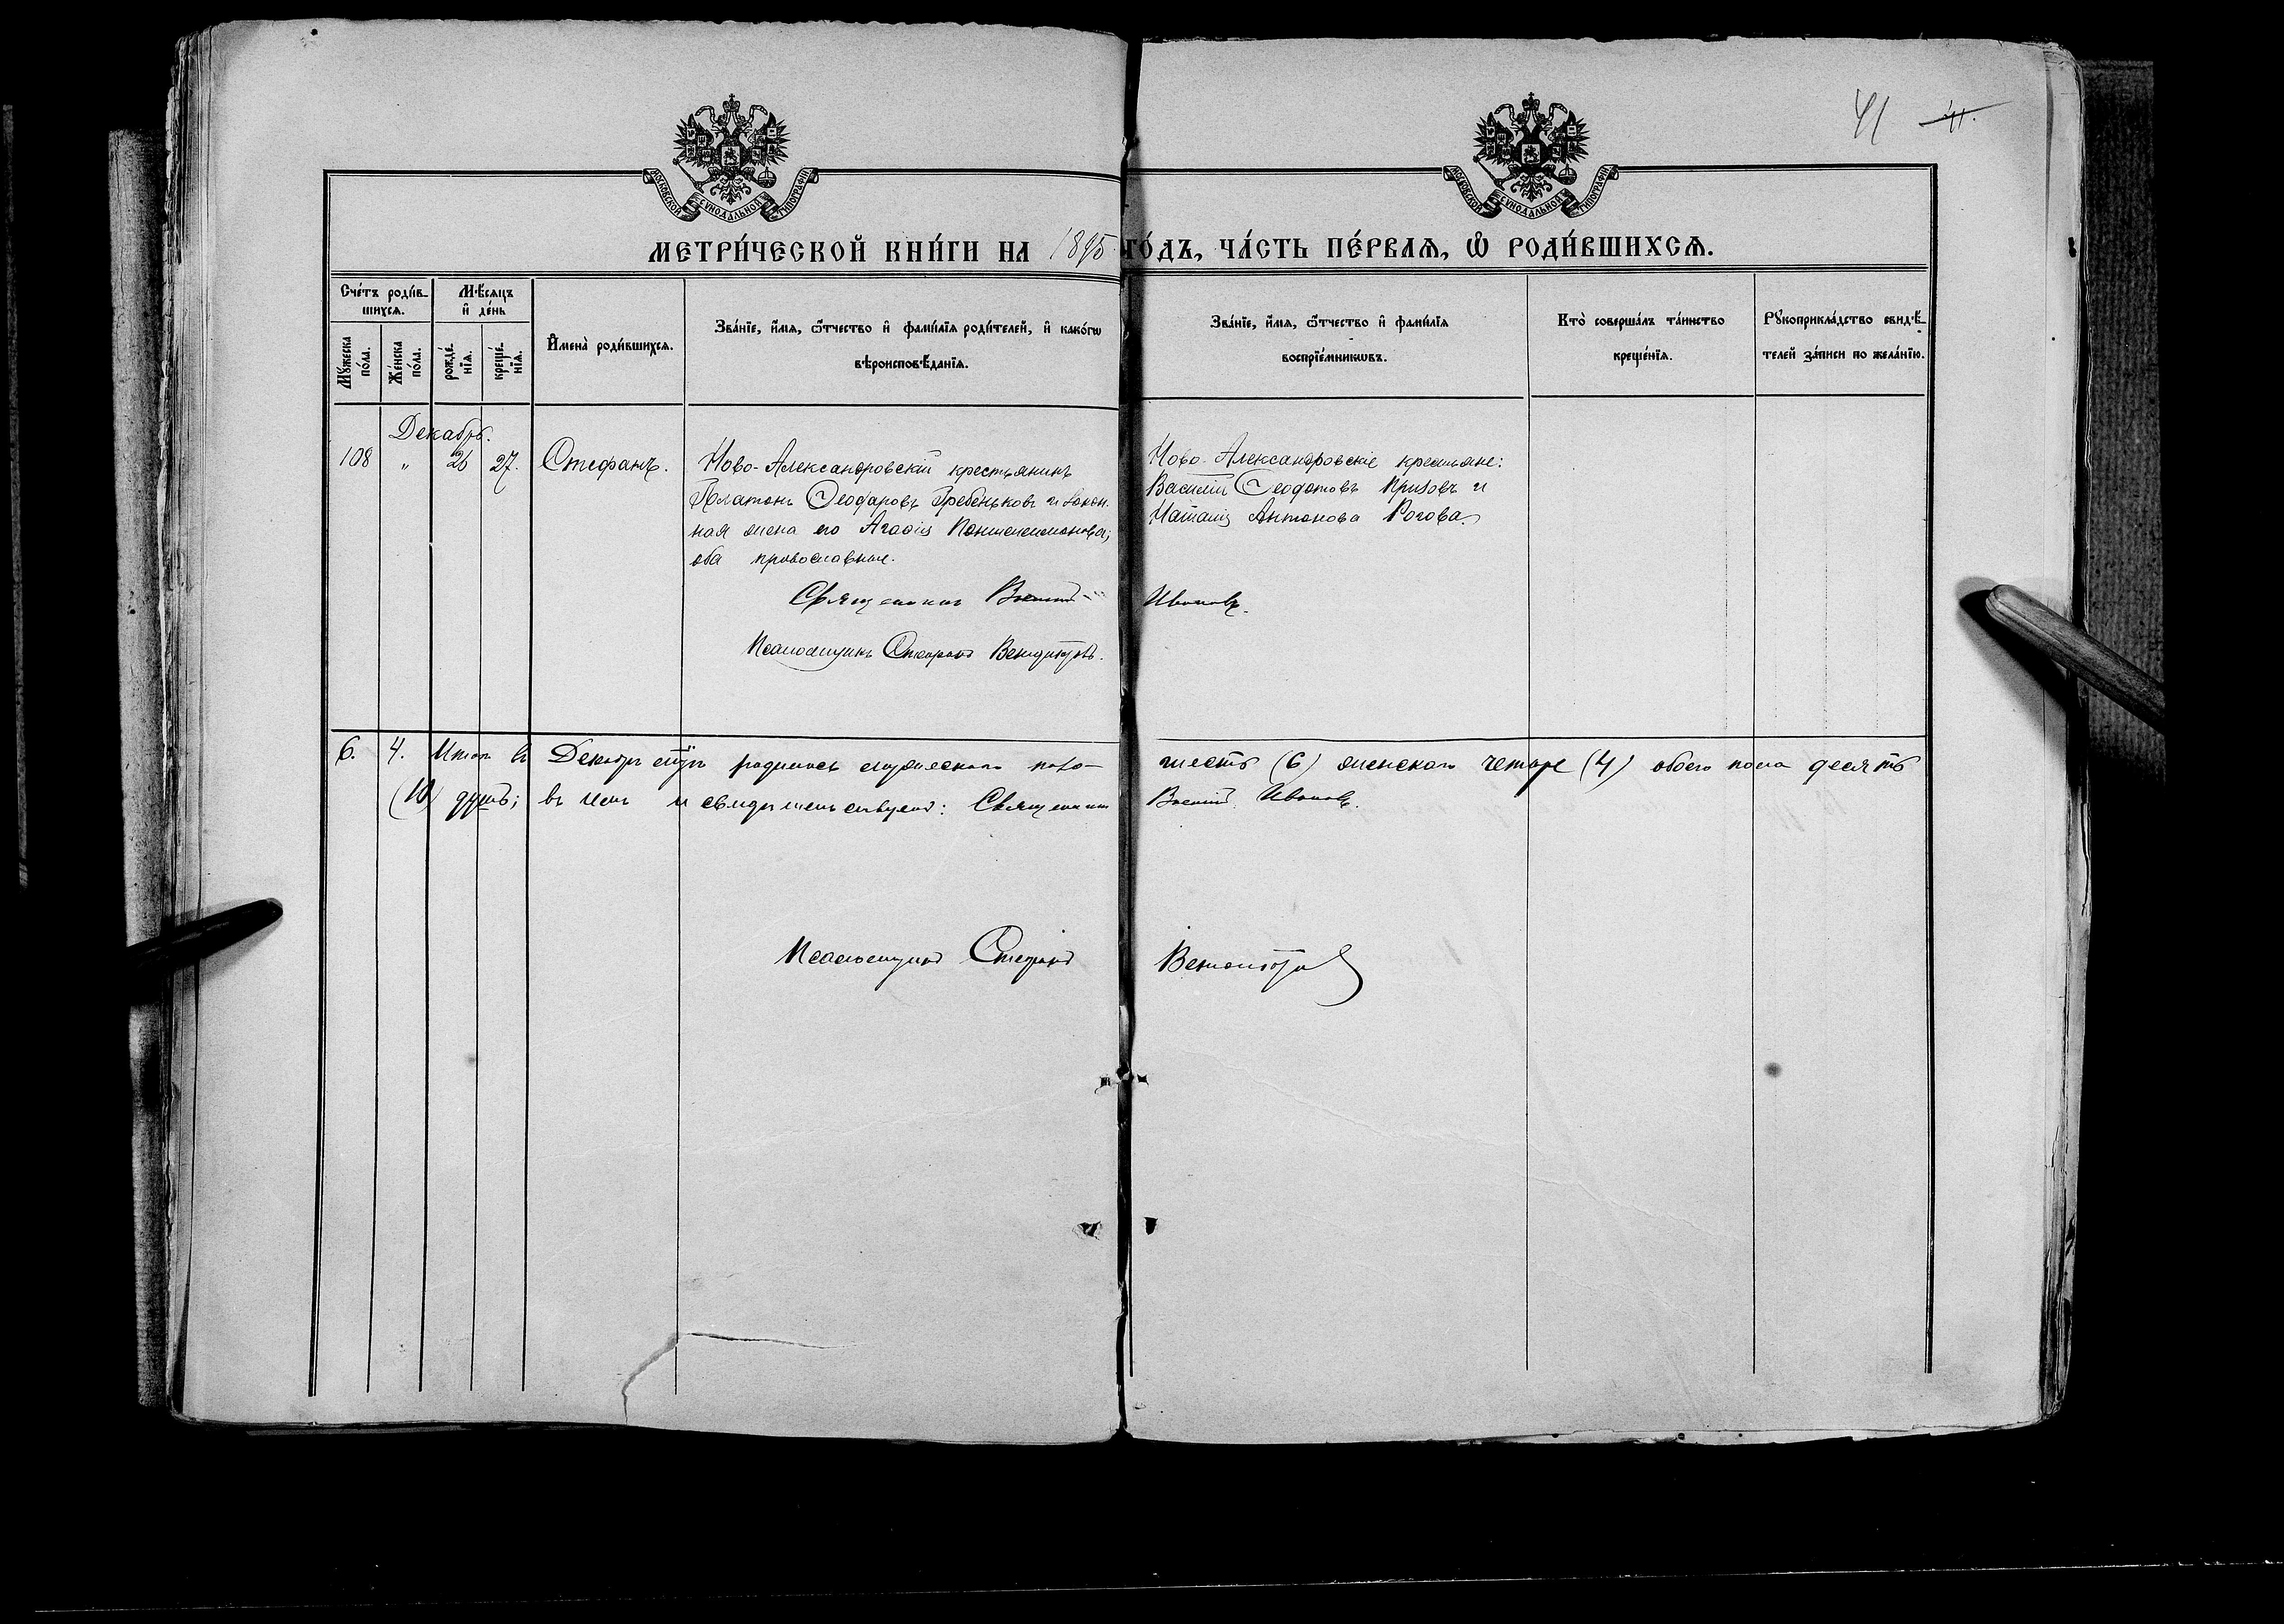 41 41.
МОСКОВСКОЙ СѴНОДАЛЬНОЙ ТИПОГРАФІИ
МОСКОВСКОЙ СѴНОДАЛЬНОЙ ТИПОГРАФІИ
МЕТРИ́ЧЕСКОЙ КНИ́ГИ НА 1895 ГО́ДЪ, ЧА́СТЬ ПЕ́РВАѦ, Ѡ РОДИ́ВШИХСѦ.
Сче́тъ роди́в-
шихсѧ.
Мꙋжеска по́ла.
Же́нска по́ла.
Мѣ́сѧцъ
и҆ де́нь
рожде́нїѧ.
креще́нїѧ.
И҆мена̀ роди́вшихсѧ.
Зва́нїе, и҆́мѧ, ѻ҆́тчество и҆ фами́лїѧ роди́телей, и҆ како́гѡ
вѣроисповѣ́данїѧ.
Зва́нїе, и҆́мѧ, ѻ҆́тчество и҆ фами́лїѧ
воспрїе́мникѡвъ.
Кто̀ соверша́лъ та́инство
креще́нїѧ.
Рꙋкоприкла́дство свидѣ́-
телей за́писи по жела́нїю.
Декабрь.
108 „ 26 27. Стефанъ.
Ново-Александровскій крестьянинъ
Платонъ Ѳеодоровъ Гребеньковъ и закон.
ная жена его Агафія Пантелеимонова;
оба православные.
Ново-Александровскіе крестьяне:
Василій Ѳеодотовъ Призовъ и
Наталія Антонова Рогова.
Священникъ Василій Ивановъ.
Псаломщикъ Стефанъ
6. 4. Итого въ Декабрѣ родилось мужескаго пола шесть (6) женскаго четыре (4) обоего пола десять
(10) душъ; въ чемъ и свидѣтельствуемъ: Священникъ Василій Ивановъ.
Псаломщикъ Стефанъ